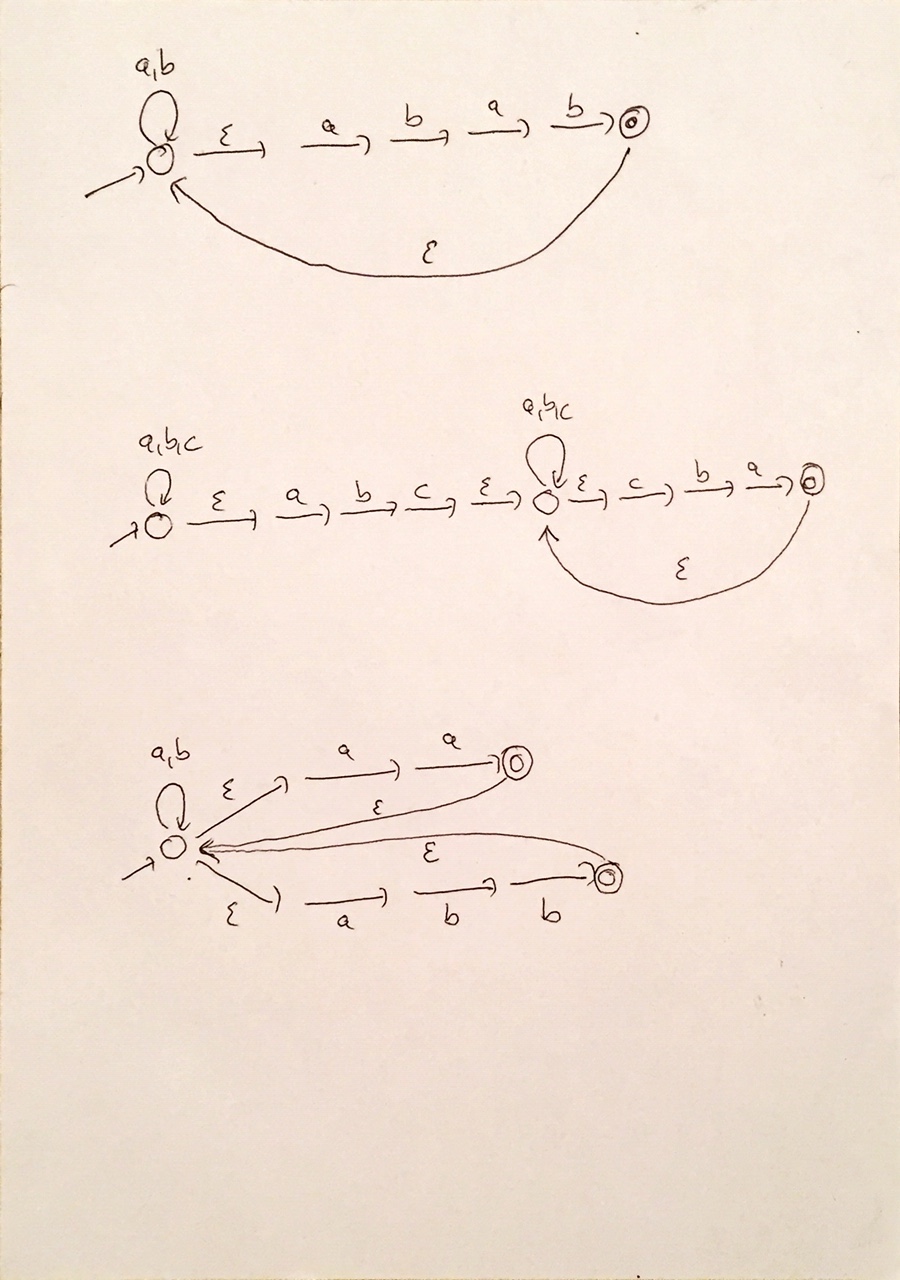 a,b
ε a b a b
ε
a,b,c
a,b,c
ε a b c ε ε c b a
ε
a,b
ε a a
ε
ε
ε a b b